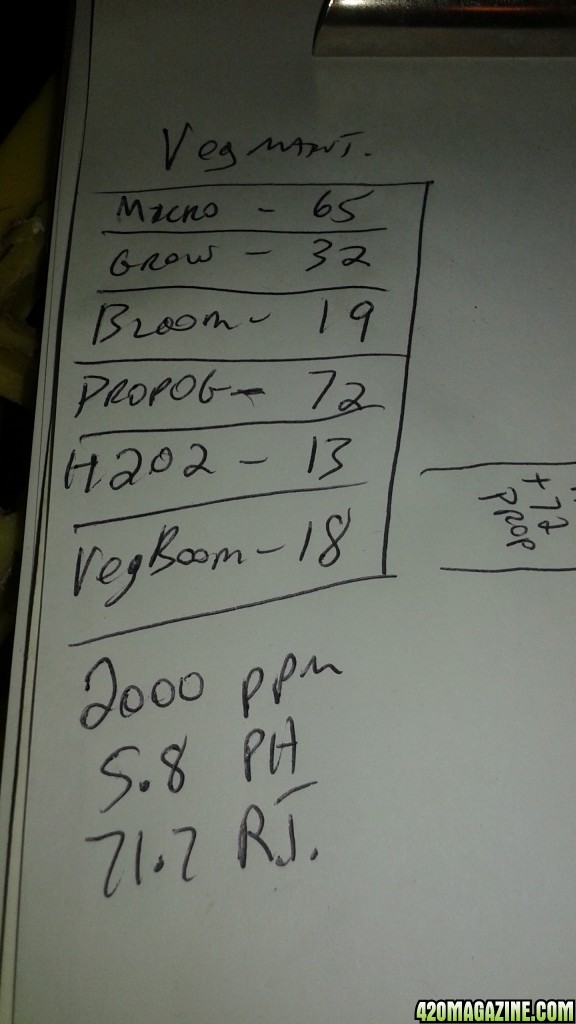 Veg MAINT.
Micro - 65
Grow - 32
Bloom - 19
PROPOG - 72
H2O2 - 13
VegBoom - 18
2000 ppm
5.8 PH
71.7 RT.
+77
PROP
420MAGAZINE.COM